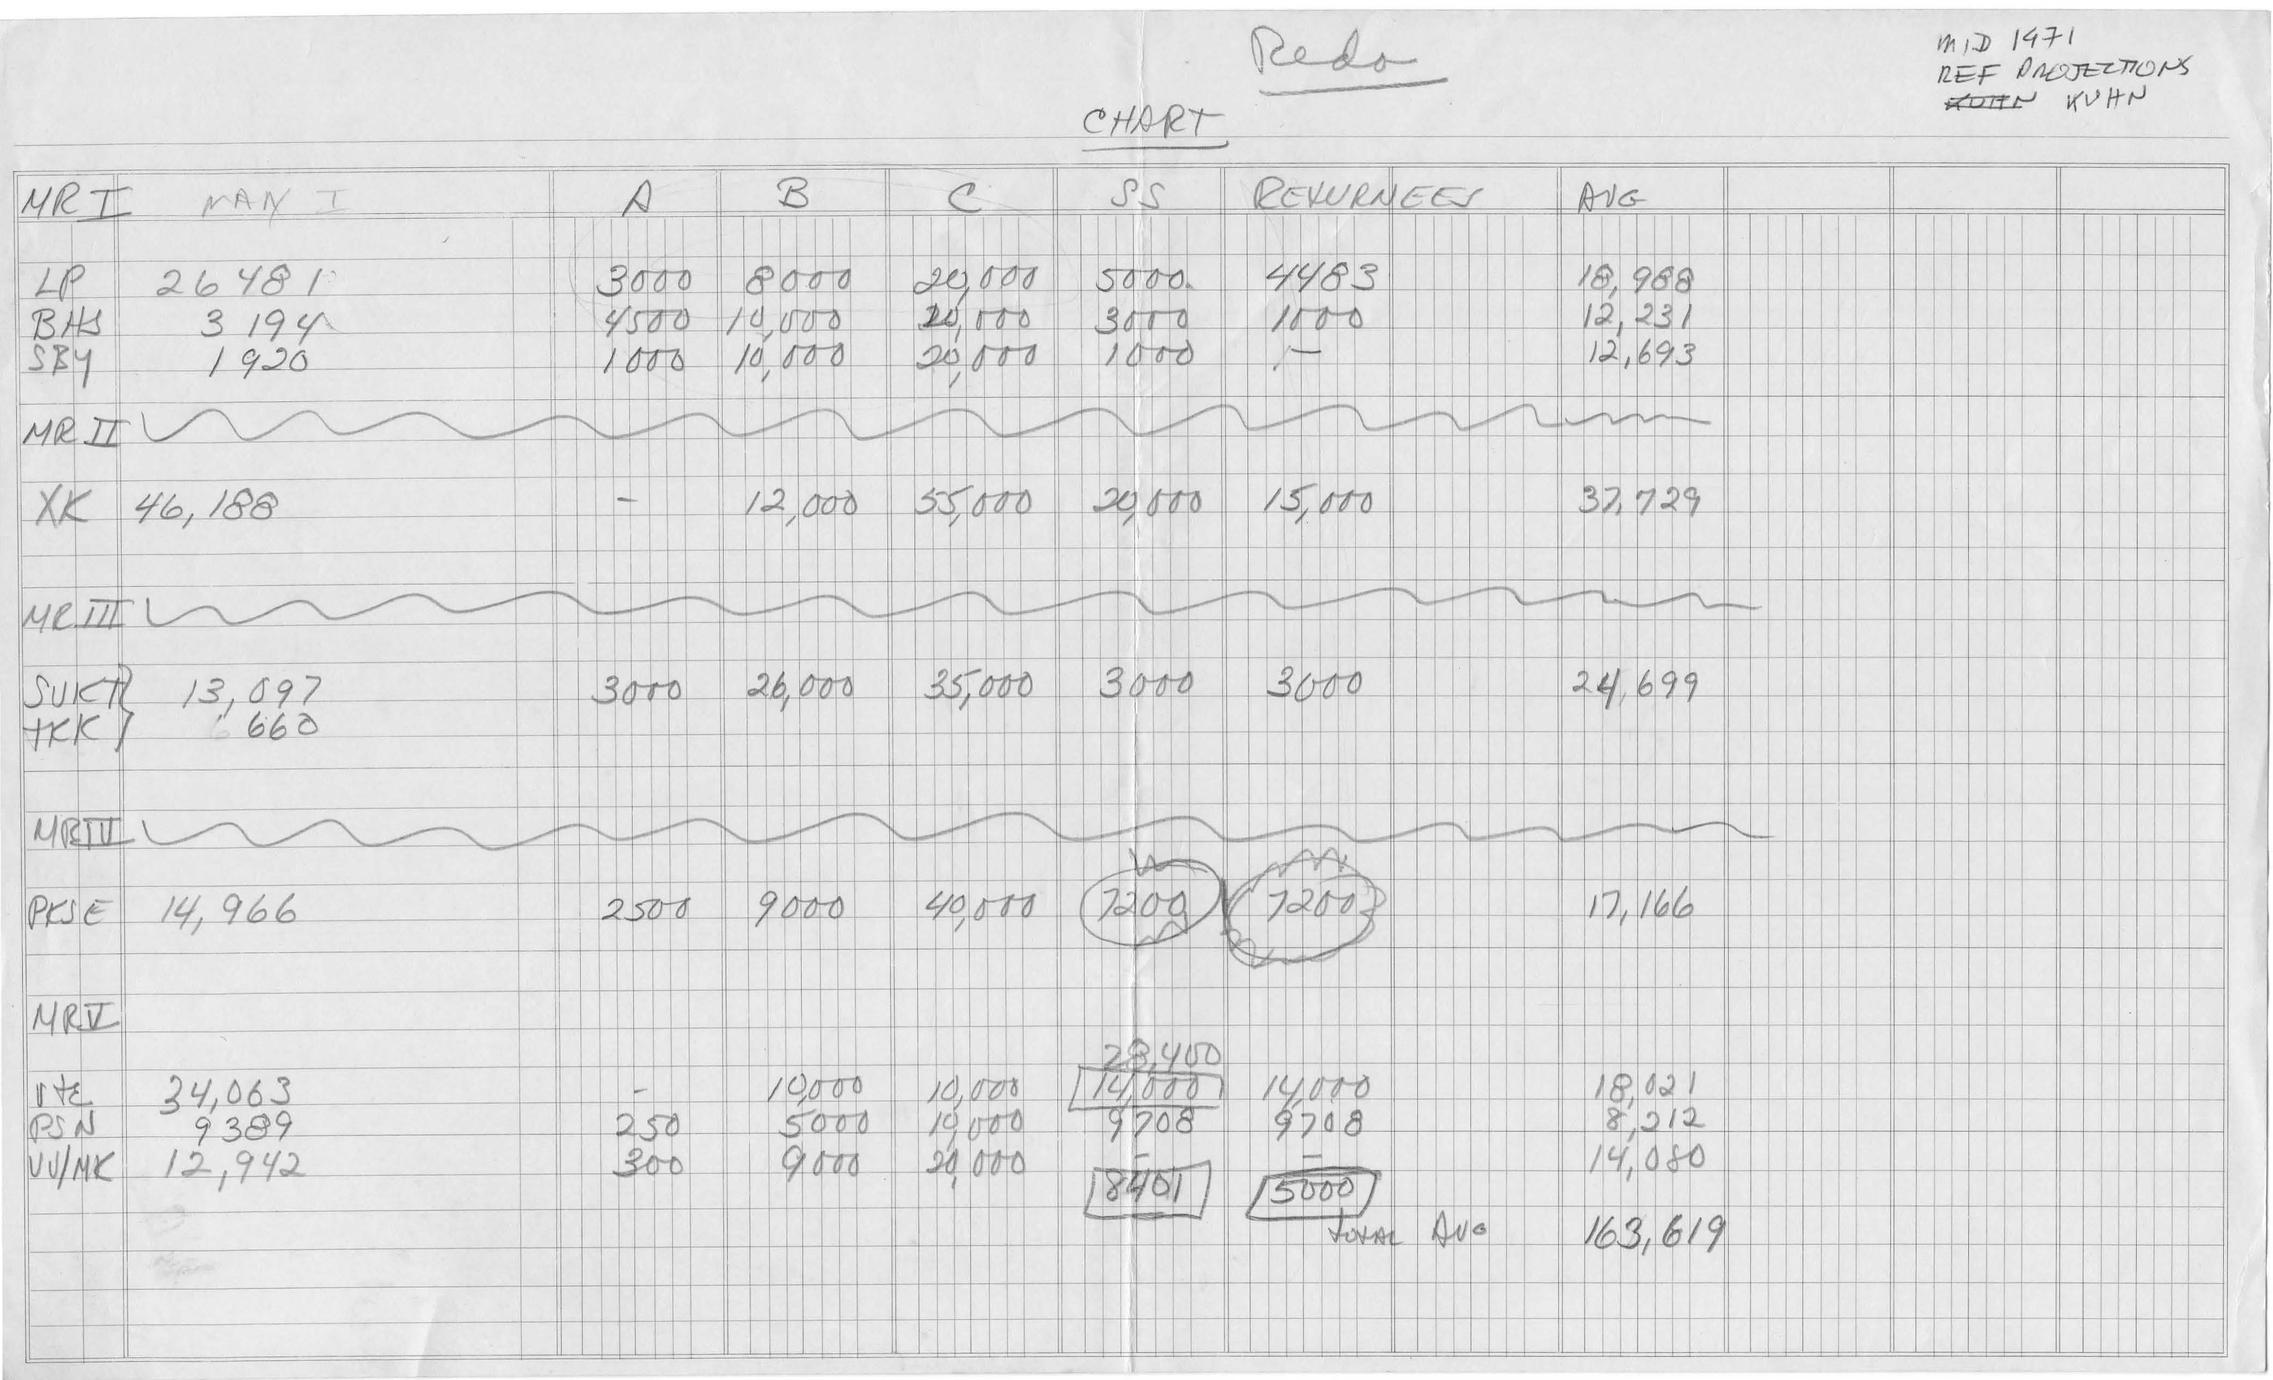 Redo
MID 1971
REF PROJECTIONS
KUHN KUHN
CHART
MR I MAN I A B C SS RETURNEES AVG
LP 26 481 3000 8000 20,000 5000 4483 18,988
BHS 3 194 4500 10,000 20,000 3000 1000 12,231
SBY 1 920 1000 10,000 20,000 1000 — 12,693
MR II
XK 46,188 - 12,000 55,000 20,000 15,000 37,729
MR III
SUKT 13,097 3000 26,000 35,000 3000 3000 24,699
TKK 660
MR IV
PKSE 14,966 2500 9000 40,000 7200 7200 17,166
MR V
28,400
VTE 34,063 - 10,000 10,000 14,000 14,000 18,021
PSN 9389 250 5000 10,000 9708 9708 8,212
VV/MK 12,942 300 9000 20,000 - - 14,080
8401 5000
TOTAL AVG 163,619